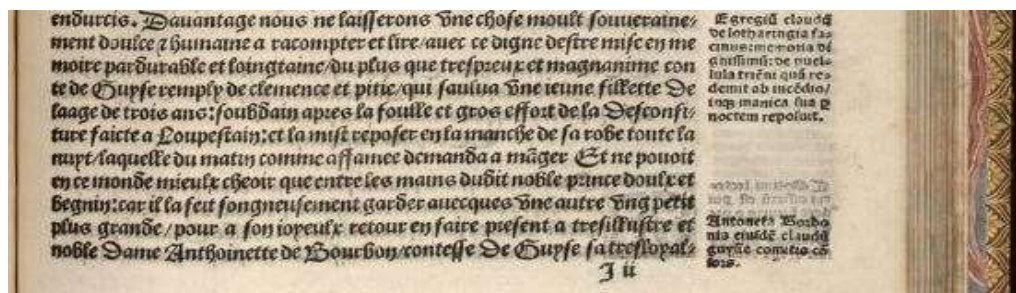 endurcis. Dauantage nous ne laisserons vne chose moult souueraine-
ment doulce ⁊ humaine a racompter et lire/auec ce digne destre mise en me
moire pardurable et loingtaine/du plus que trespreux et magnanime con
te de Guyse remply de clemence et pitie/qui saulua vne ieune fillette de
laage de trois ans: soubdain apres la foulle et gros effort de la Desconfi-
ture faicte a Loupestain: et la mist reposer en la manche de sa robe toute la
nuyt/laquelle du matin comme affamee demanda a mãger Et ne pouoit
en ce monde mieulx cheoir que entre les mains dudit noble prince doulx et
begnin: car il la feit songneusement garder auecques vne autre vng petit
plus grande/pour a son ioyeulx retour en faire present a tresillustre et
noble Dame Anthoinette de Bourbon/contesse de Guyse sa tresloyal-
J ii
Egregiũ claudii
de lotharingia fa-
cinus: memoria di
gnissimũ: de puel-
lula triẽni quã re-
demit ab incẽdio/
inq3 manica sua ꝑ
noctem reposuit.
Antoneta Borbo
nia eiusdẽ claudii
guysie comitis cõ
iors.